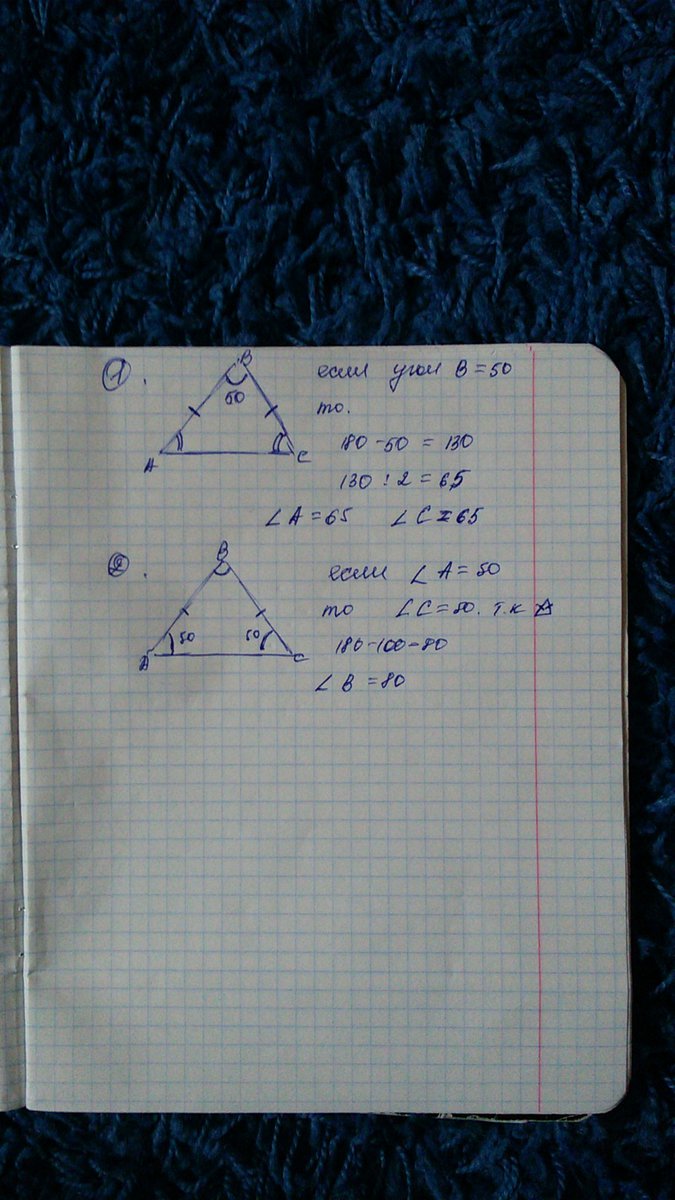 1.
B
50
A
C
если угол B = 50
то.
180 - 50 = 130
130 : 2 = 65
∠A = 65 ∠C = 65
2.
B
50
50
A
C
если ∠A = 50
то ∠C = 50. т.к
180-100=80
∠B = 80